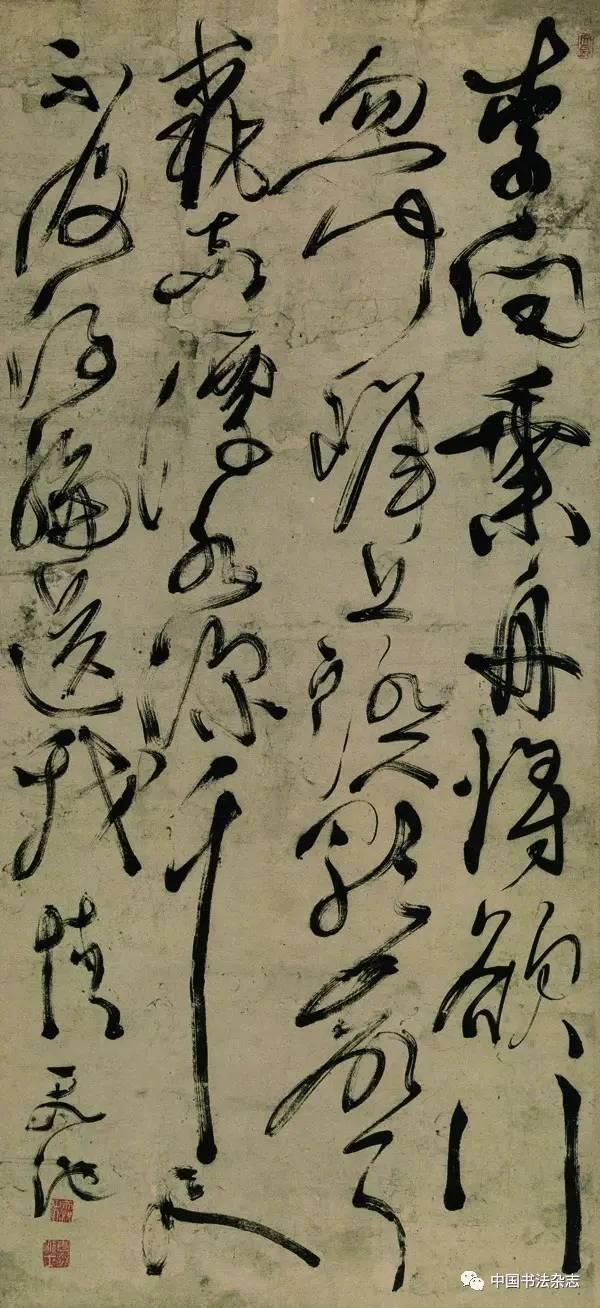 李白乘舟將欲行
忽聞岸上踏歌聲
桃花潭水深千尺
不及汪倫送我情
天池
中国书法杂志